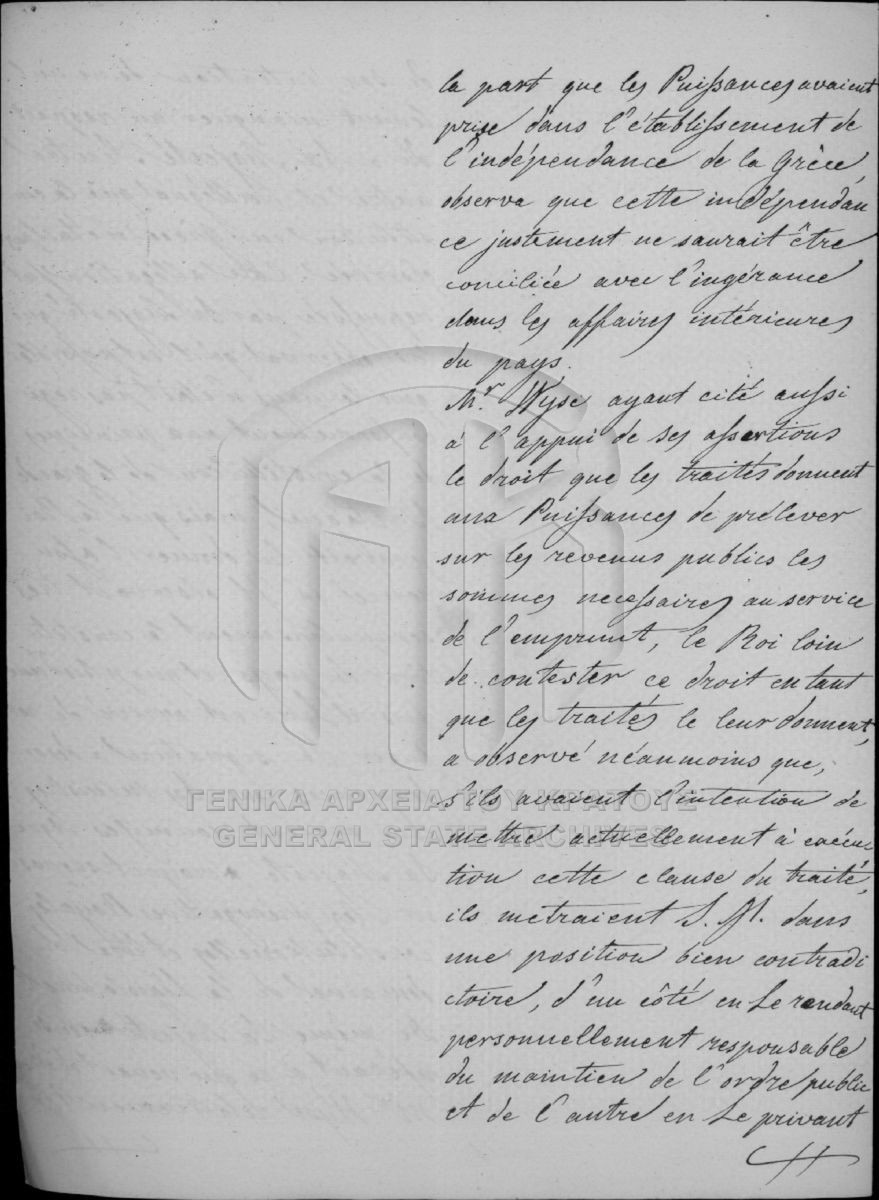 la part que les Puissances avaient
prise dans l'établissement de
l'indépendance de la Grèce,
observa que cette indépendan
ce justement ne saurait être
conciliée avec l'ingérance
dans les affaires intérieures
du pays.
Mr. Wyse ayant cité aussi
à l'appui de ses assertions
le droit que les traités donnent
aux Puissances de prélever
sur les revenus publics les
sommes necessaires au service
de l'emprunt, le Roi loin
de contester ce droit en tant
que les traités le leur donnent,
a observé néanmoins que,
s'ils avaient l'intention de
ΓΕΝΙΚΑ ΑΡΧΕΙΑ ΤΟΥ ΚΡΑΤΟΥΣ
GENERAL STATE ARCHIVES
mettre actuellement à exécu
tion cette clause du traité,
ils metraient S. M. dans
une position bien contradi
ctoire, d'un côté en Le rendant
personnellement responsable
du maintien de l'ordre public
et de l'autre en Le privant